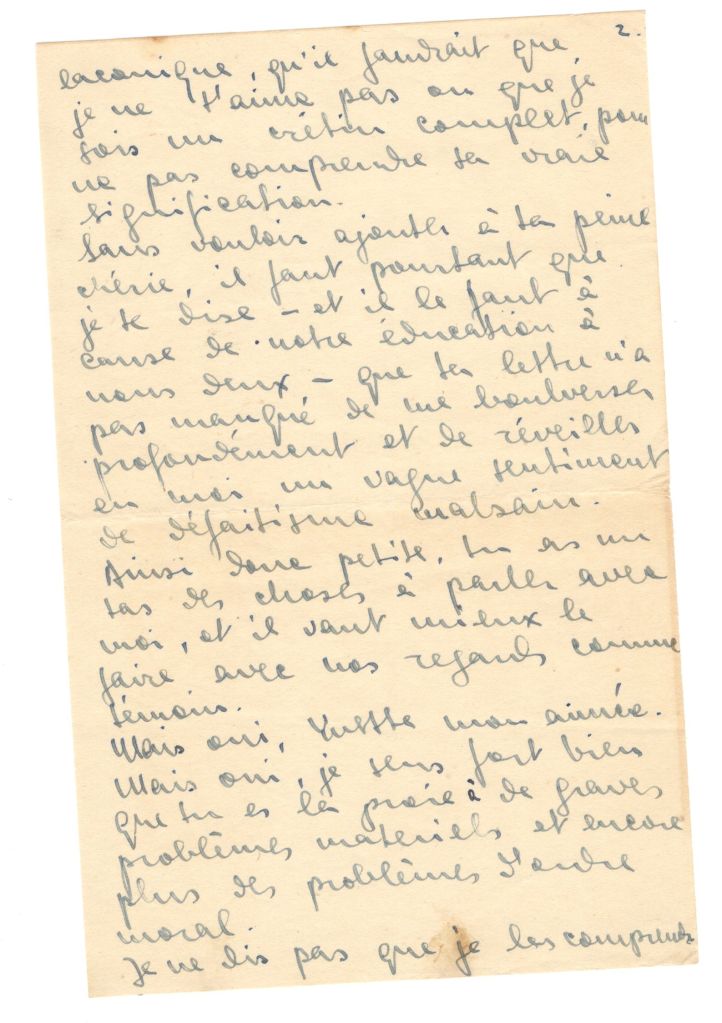 2.
laconique, qu'il faudrait que
je ne t'aime pas ou que je
sois un crétin complet, pour
ne pas comprendre ta vraie
signification.
Sans vouloir ajouter à ta peine
chérie, il faut pourtant que
je te dise – et il le faut à
cause de notre éducation à
nous deux – que ta lettre n'a
pas manqué de me boulverser
profondément et de réveiller
en moi un vague sentiment
de défaitisme malsain.
Ainsi donc petite, tu as un
tas des choses à parler avec
moi, et il vaut mieux le
faire avec nos regards comme
témoin.
Mais oui, Yvette mon aimée.
Mais oui, je sens fort bien
que tu es la proie à de graves
problèmes materiels et encore
plus des problèmes d'ordre
moral.
Je ne dis pas que je les comprends